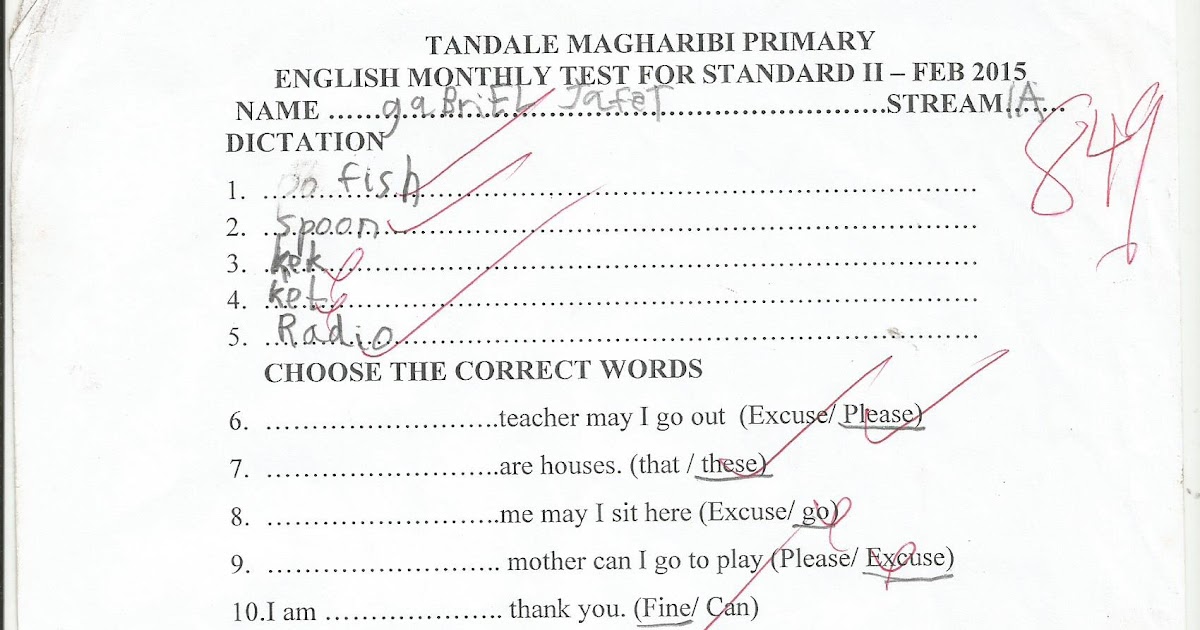 TANDALE MAGHARIBI PRIMARY
ENGLISH MONTHLY TEST FOR STANDARD II – FEB 2015
NAME ......gaBriEL Jafet..........................STREAM.1A.....
DICTATION
1. .....fish..........................................
2. ..spoon..........................................
3. ..kek..........................................
4. ..ket..........................................
5. ..Radio..........................................
CHOOSE THE CORRECT WORDS
6. ……………………..teacher may I go out (Excuse/ Please)
7. ……………………..are houses. (that / these)
8. ……………………..me may I sit here (Excuse/ go)
9. …………………….. mother can I go to play (Please/ Excuse)
10.I am ………………… thank you. (Fine/ Can)